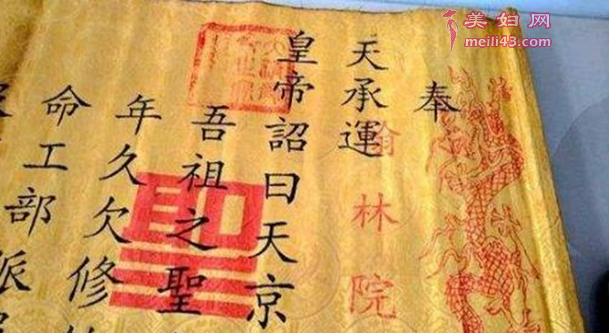 奉
天承運
皇帝詔曰天京
吾祖之聖
年久欠修
命工部派
翰林院
美妇网
meili43.com